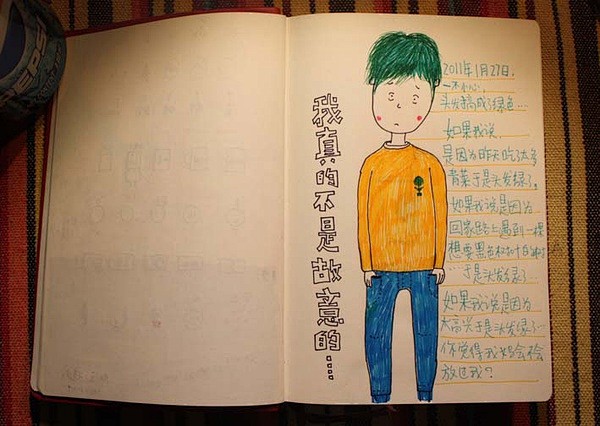 PEPSI
我真的不是故意的……
2011年1月27日.
一不小心
头发搞成了绿色...
如果我说
是因为昨天吃了太多
青菜于是头发绿了。
如果我说是因为
回家路上遇到一棵
想要黑色树叶的树
...于是头发绿了...
如果我说是因为
于是头发绿了...
你觉得我妈会不会
放过我?